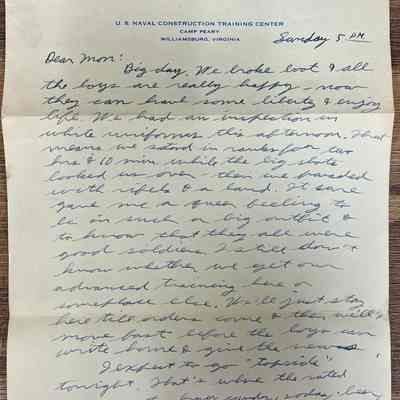 U. S. NAVAL CONSTRUCTION TRAINING CENTER
CAMP PEARY
WILLIAMSBURG, VIRGINIA
Sunday 5 PM
Dear Mom:
Big day. We broke boot & all
the boys are really happy - now
they can have some liberty & enjoy
life. We had an inspection in
white uniforms this afternoon. That
means we stood in ranks for two
hrs & 10 min while the big shots
looked us over - then we paraded
with rifels & a band. It sure
gave me a queer feeling to
be in such a big outfit &
to know that they all were
good soldiers. I still don't
know whether we get our
advanced training here or
someplace else. We'll just stay
here till orders come & then we'll
move fast before the boys can
write home & give the news
I expect to go "topside"
tonight. That's where the rated
soda, beer